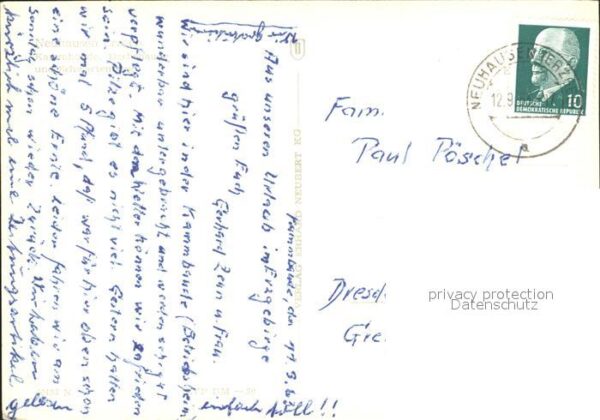 Kammbaude, den 11.9.62
Aus unserem Urlaub im Erzgebirge
grüßen Euch
Gerhard Zenn u. Frau.
Wir sind hier in der Kammbaude (Betriebsheim
wunderbar untergebracht und werden sehr gut
verpflegt. Mit dem Wetter können wir zufrieden
sein. Pilze gibt es nicht viel. Gestern hatten
wir mal 5 Pfund, das war für hier oben schon
eine schöne Ernte. Leider fahren wir am
schon wieder zurück. Wir haben
kürzlich mal eine Zeitungsartikel
gelesen
einfach toll!!
VERLAG ERHARD NEUBERT KG
NEUHAUSEN (ERZ
12.9
DEUTSCHE
DEMOKRATISCHE REPUBLIK
10
Fam.
Paul Pöschel
Dresd
Gre
privacy protection
Datenschutz